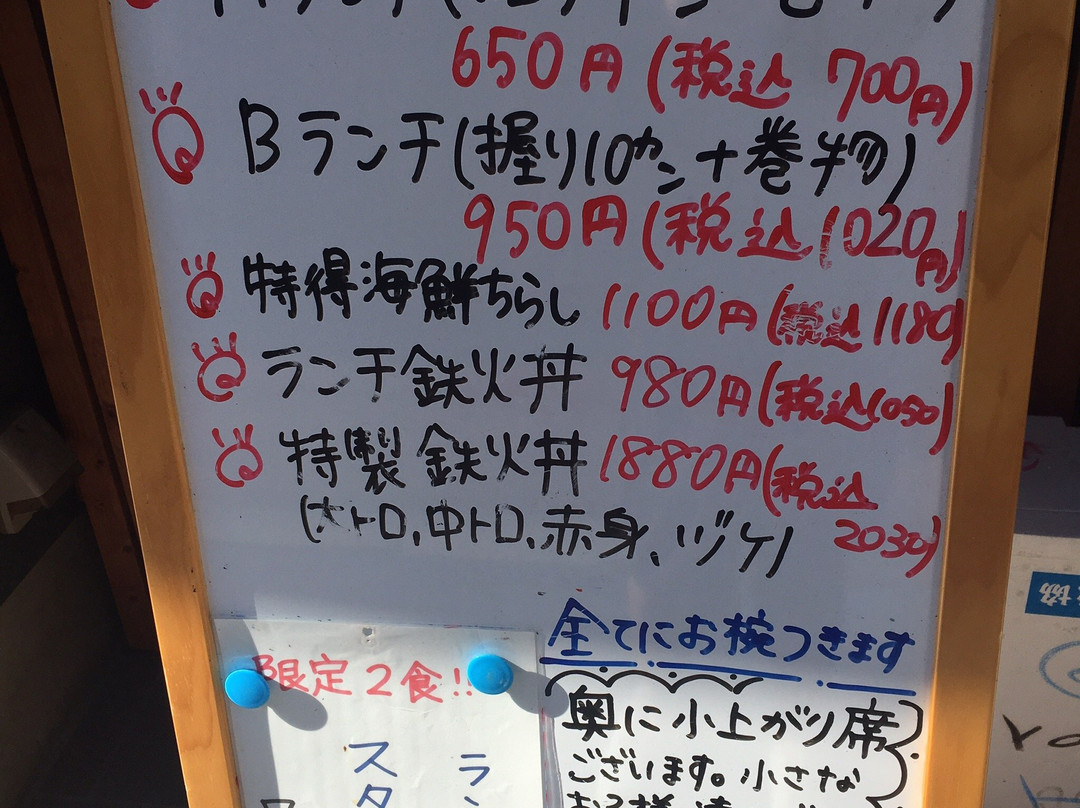 650円(税込 700円)
Bランチ(握り10カン+巻物)
950円(税込1020円)
特得海鮮ちらし 1100円(税込1180)
ランチ鉄火丼 980円(税込1050)
特製鉄火丼 1880円(税込
2030)
(大トロ、中トロ、赤身、ヅケ)
全てにお椀つきます
限定2食!!
奥に小上がり席
ございます。小さな
ラン
スタ
協